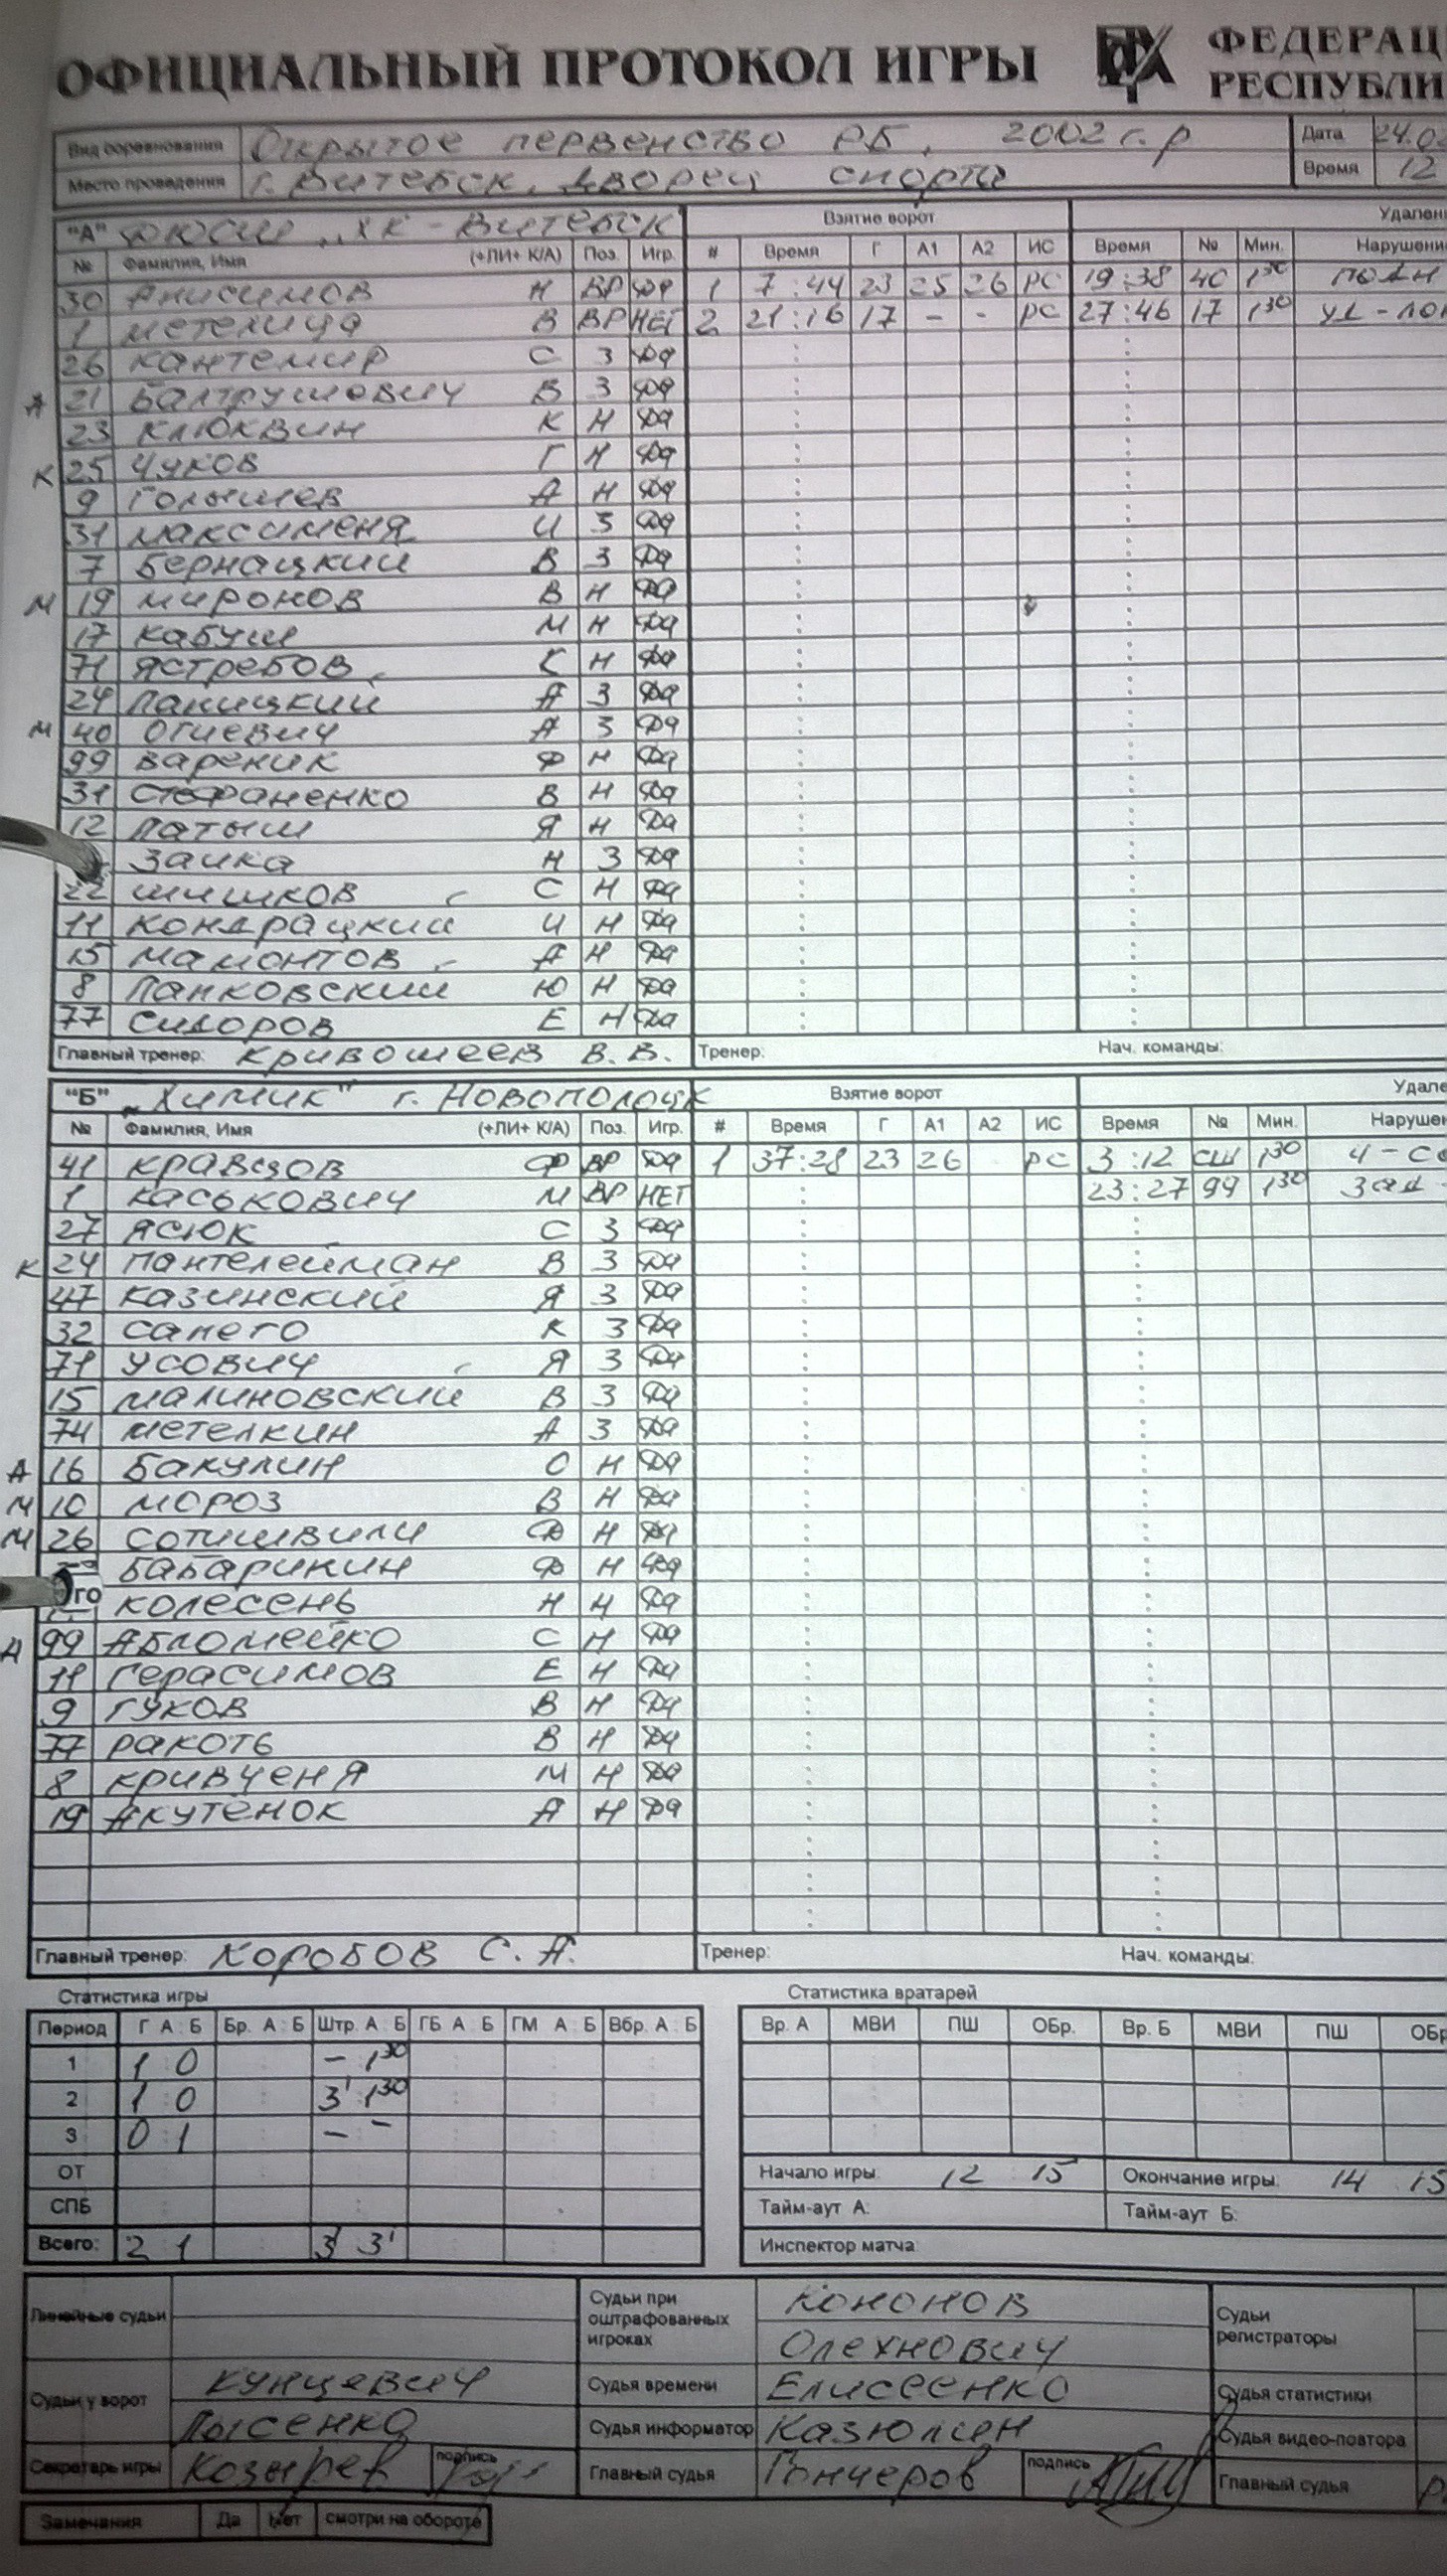 ОФИЦИАЛЬНЫЙ ПРОТОКОЛ ИГРЫ ФЕДЕРАЦ
РЕСПУБЛИ
Вид соревнования Открытое первенство РБ, 2002 г.р Дата 24.0
Место проведения г. Витебск, Дворец спорта Время 12
"А" ДЮСШ „ХК - Витебск Взятие ворот Удален
№ Фамилия, Имя (+ЛИ+ К/А) Поз. Игр. # Время Г А1 А2 ИС Время № Мин. Нарушени
30 Анисимов Н ВР да 1 7:44 23 25 26 РС 19:38 40 1 30
1 Метелица В ВР НЕТ 2 21:16 17 - - РС 27:46 17 1 30
26 Кантемир С З Да
А 21 Балтрушевич В З Да
23 Клюквин К Н Да
К 25 Чуков Г Н Да
9 Голышев А Н Да
31 Максименя И З Да
7 Бернацкий В З Да
М 19 Миронов В Н Да
17 Кабуш М Н Да
71 Ястребов К Н Да
24 Паницкий А З Да
М 40 Огиевич А З Да
99 Вареник Ф Н Да
31 Стефаненко В Н Да
12 Латыш Я Н Да
Заика Н З Да
22 Шишков С Н Да
11 Кондрацкий И Н Да
15 Мамонтов А Н Да
8 Панковский Ю Н Да
77 Сидоров Е Н Да
Главный тренер: Кривошеев В.В. Тренер: Нач. команды:
"Б" „Химик" г. Новополоцк Взятие ворот Удале
№ Фамилия, Имя (+ЛИ+ К/А) Поз. Игр. # Время Г А1 А2 ИС Время № Мин. Нарушен
41 Кравцов Ф ВР Да 1 37:28 23 26 РС 3:12 СШ 1 30
1 Каськович М ВР НЕТ 23:27 99 1 30
27 Ясюк С З Да
К 24 Пантелейман В З Да
47 Казинский Я З Да
32 Сапего К З Да
71 Усович Я З Да
15 Малиновский В З Да
74 Метелкин А З Да
А 16 Бакулин О Н Да
М 10 Мороз В Н Да
М 26 Сотишвили Д Н Да
Бабарикин Ф Н Да
Колесень Н Н Да
А 99 Абломейко С Н Да
11 Герасимов Е Н Да
9 Гуков В Н Да
77 Ракоть В Н Да
8 Кривченя М Н Да
19 Акутёнок А Н Да
Главный тренер: Коробов С.А. Тренер: Нач. команды:
Статистика игры Статистика вратарей
Период Г А Б Бр. А Б Штр. А Б ГБ А Б ГМ А Б Вбр. А Б Вр. А МВИ ПШ ОБр. Вр. Б МВИ ПШ ОБр
1 1 0 - 1 30
2 1 0 3' 1 30
3 0 1 - -
ОТ Начало игры: 12 15 Окончание игры: 14 15
СПБ Тайм-аут А: Тайм-аут Б:
Всего: 2 1 3' 3' Инспектор матча:
Линейные судьи Судьи при оштрафованных игроках Кононов Судьи регистраторы
Олехнович
Судьи у ворот Кунцевич Судья времени Елисеенко Судья статистики
Лысенко Судья информатор Казюлин Судья видео-повтора
Секретарь игры Козырев подпись Главный судья Гончеров подпись Главный судья
Замечания Да Нет смотри на обороте